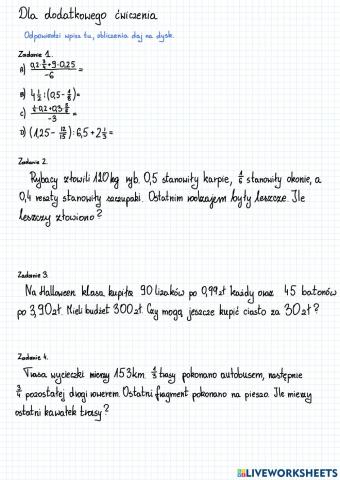 Dla dodatkowego ćwiczenia
Odpowiedzi wpisz tu, obliczenia daj na dysk.
Zadanie 1.
A) =
-6
B) 4 1/2 : (0,5 - ) =
C) =
-3
D) (1,25 - 12/15) : 6,5 + 2 1/3 =
Zadanie 2.
Rybacy złowili 120kg ryb. 0,5 stanowiły karpie, 1/6 stanowiły okonie, a
0,4 reszty stanowiły szczupaki. Ostatnim rodzajem były leszcze. Ile
leszczy złowiono?
Zadanie 3.
Na Halloween klasa kupiła 90 lizaków po 0,99zł każdy oraz 45 batonów
po 3,90zł. Mieli budżet 300zł. Czy mogą jeszcze kupić ciasto za 30zł?
Zadanie 4.
Trasa wycieczki mierzy 153km. 1/3 trasy pokonano autobusem, następnie
3/4 pozostałej drogi rowerem. Ostatni fragment pokonano na pieszo. Ile mierzy
ostatni kawałek trasy?
LIVEWORKSHEETS